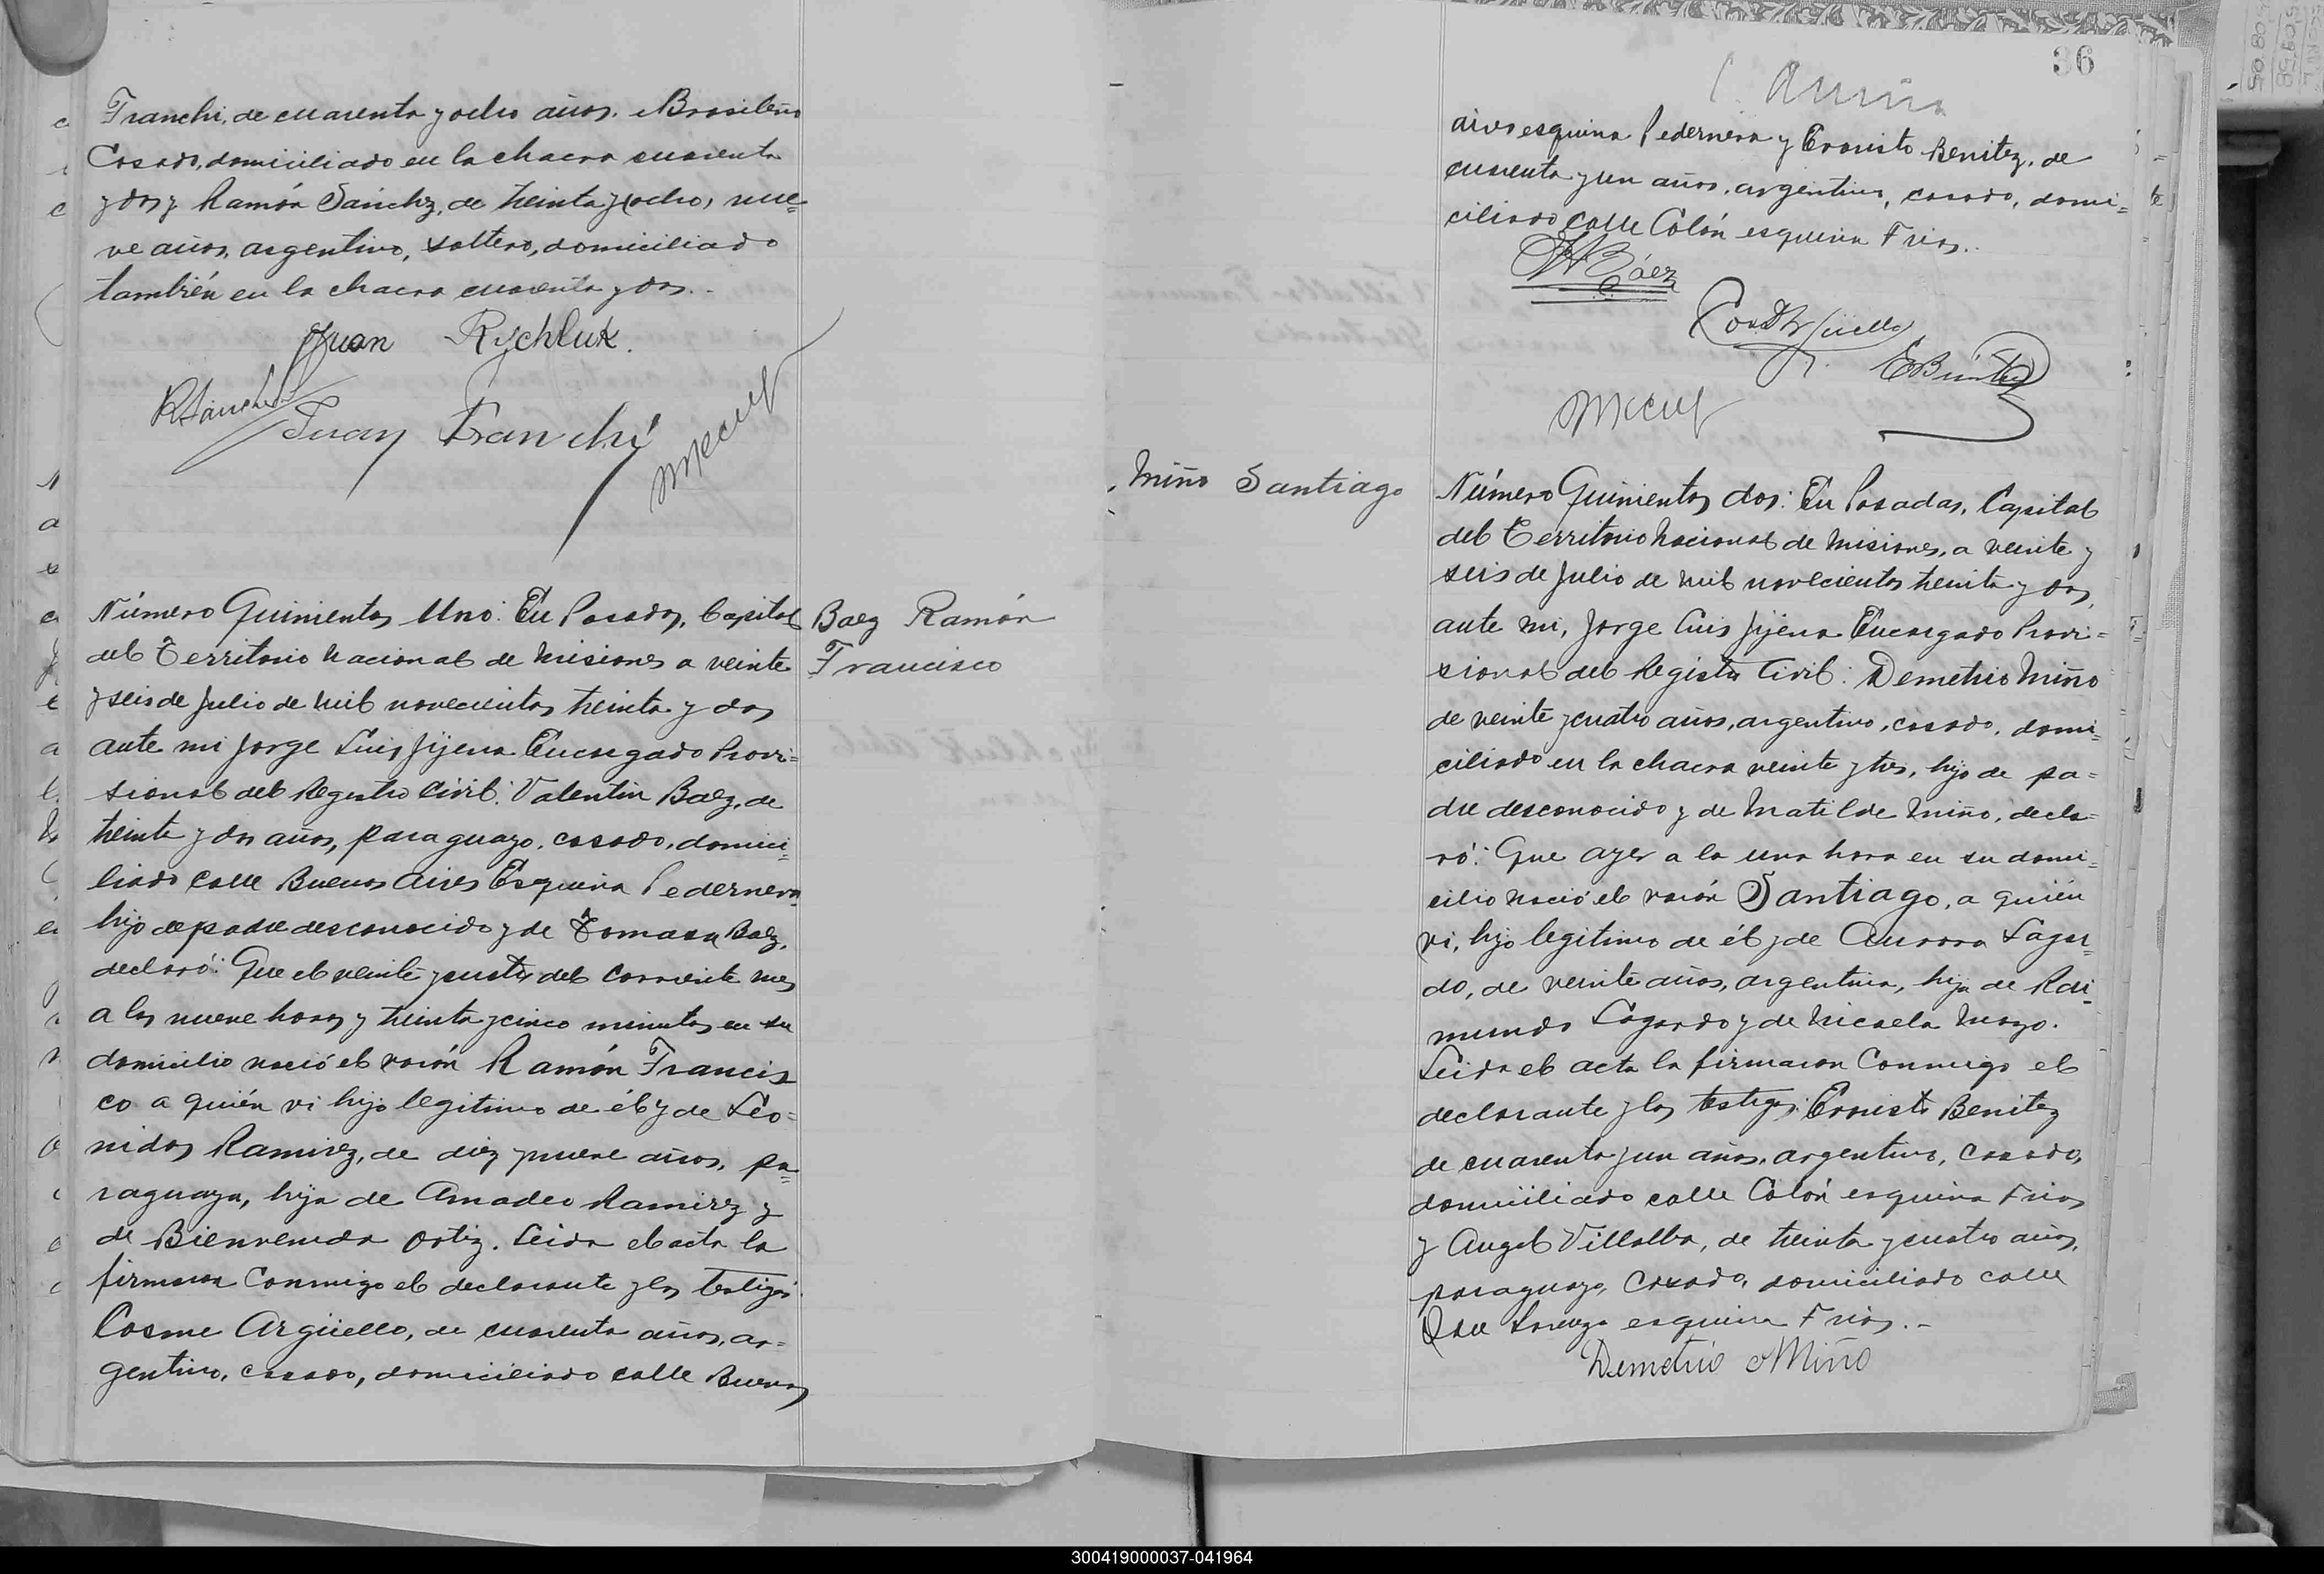 Franchi, de cuarenta y ocho años. Brasileño
Casado, domiciliado en la chacra cuarenta
y dos y Ramón Sánchz, de treinta y ocho, nue=
ve años, argentino, soltero, domiciliado
también en la chacra cuarenta y dos.-
Juan Rychluk.
RSánchez
Juan Franchi
Número Quinientos Uno: En Posadas, Capital
del Territorio Nacional de Misiones a veinte
y seis de Julio de mil novecientos treinta y dos
ante mi Jorge Luis Jijena Encargado Provi=
sional del Registro Civil: Valentin Baez, de
treinta y dos años, paraguayo, casado, domici=
liado calle Buenos Aires Esquina Pedernera
hijo de padre desconocido y de Tomasa Baez,
declaró: Que el veinte y cuatro del corriente mes
a las nueve horas y treinta y cinco minutos en su
domicilio nació el varón Ramón Francis
co a quién vi hijo legitimo de él y de Leo=
nidas Ramirez, de diez y nueve años, pa=
raguaya, hija de Amadeo Ramirez y
de Bienvenida Ortiz. Leida el acta la
firmaron Conmigo el declarante y los testigos
Cosme Argüello, de cuarenta años, ar=
gentino, casado, domiciliado calle Buenos
Baez Ramón
Francisco
36
aires esquina Pedernera y Evaristo Benitez, de
cuarenta y un años, argentino, casado, domi=
ciliado calle Colón esquina Frias.
Báez
EBenitez
Miño Santiago
Número Quinientos dos: En Posadas, Capital
del Territorio Nacional de Misiones, a veinte y
seis de Julio de mil novecientos treinta y dos,
ante mi, Jorge Luis Jijena Encargado Provi=
sional del Registro Civil: Demetrio Miño
de veinte y cuatro años, argentino, casado, domi=
ciliado en la chacra veinte y tres, hijo de pa=
dre desconocido y de Matilde Miño, decla=
ró: Que ayer a la una hora en su domi=
cilio nació el varón Santiago, a quién
vi, hijo legitimo de él y de Aurora Lagar=
do, de veinte años, argentina, hija de Rai=
mundo Lagardo y de Micaela Mazo.
Leida el acta la firmaron Conmigo el
declarante y los testigos: Evaristo Benitez
de cuarenta y un años, argentino, casado,
domiciliado calle Colón esquina Frias
y Angel Villalba, de treinta y cuatro años,
paraguayo, casado, domiciliado calle
San Lorenzo esquina Frias.-
Demetrio Miño
300419000037-041964